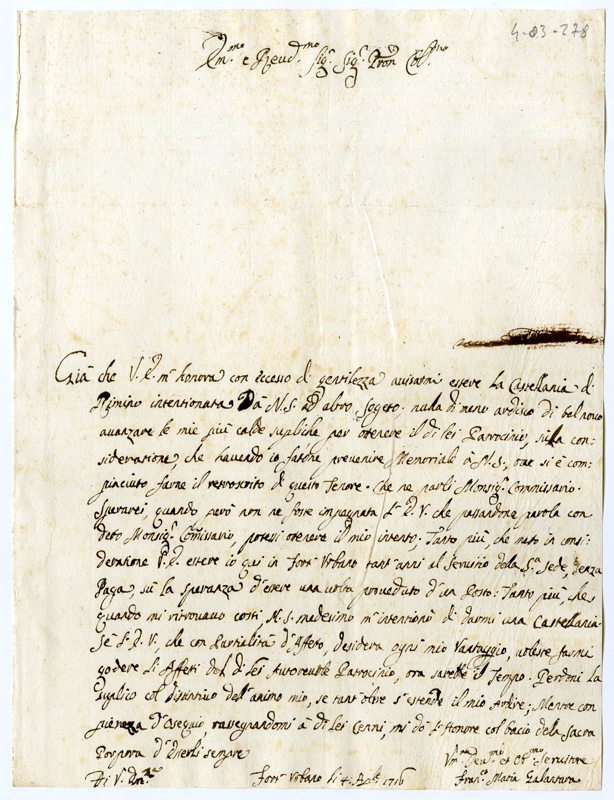 4-83-278
Em.mo e Reud.mo Sig.r Sig.r Pron Col.mo
Già che V.E. m'honora con eccesso di gentilezza auisarmi essere la Castellania di
Rimino intentionata Da N.S. ad altro Sogeto; nulla di meno ardisco di bel nouo
auanzare le mie più calde supliche per otenere il di lei Patrocinio, su la con-
sideratione, che hauendo io fatone preuenire Memoriale à N.S., oue si è com-
piaciuto farne il rescrito di questo tenore. Che ne parli Monsig.r Commissario.
Sperarei quando però non ne fosse impegnata l'E.V. che passandone parola con
deto Monsig.r Comissario, potessi otenere il mio intento; Tanto più, che noto in consi-
deratione V.E. essere io qui in Fort'Urbano tant'anni al seruitio della S.a Sede, senza
Paga, sù la speranza d'essere una uolta proueduto d'un Posto: Tanto più, che
quando mi ritrouauo costì N.S. medesimo m'intentionò di darmi una Castellania.
Se l'E.V., che con Partialità d'Affeto, desidera ogni mio Vantaggio, uolesse farmi
godere li Affeti del di lei Autoreuole Patrocinio, ora sarebe il tempo. Perdoni la
suplico col distintiuo dell'animo mio, se tant'oltre s'estende il mio Ardire; Mentre con
pienezza d'Osequio, rassegnandomi à di lei Cenni, mi dò l'honore col bacio dela Sacra
Porpora d'essere sempre
Di V. Em.za
Fort'Urbano li 4 1716
Um.mo Deu.mo et Ob.mo Seruitore
Fran.co Maria